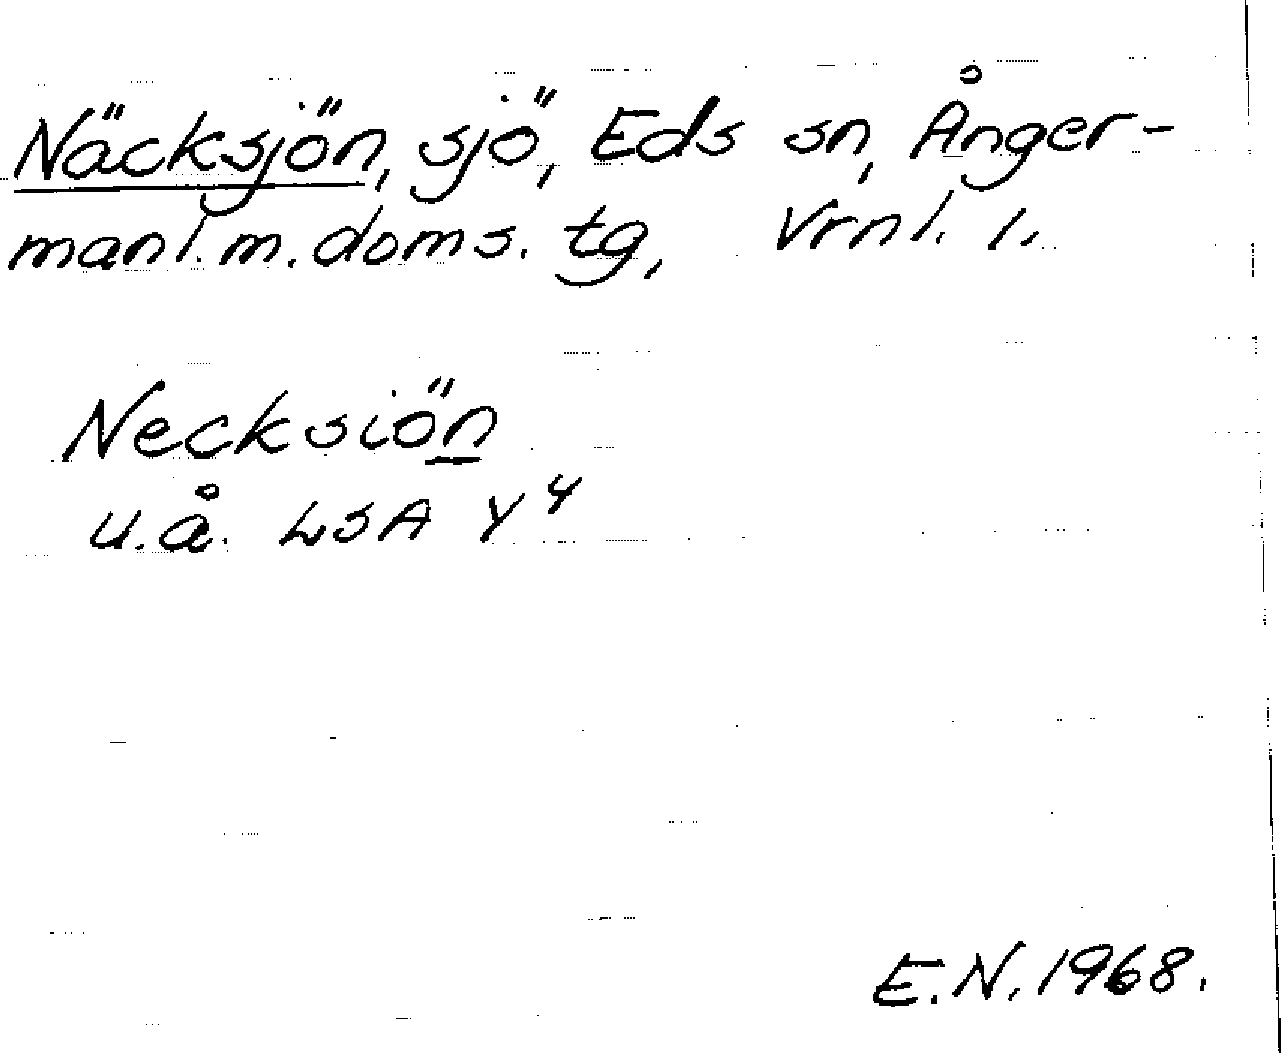 Näcksjön, sjö, Eds sn, Ånger-
manl. m. doms. tg, Vrnl. l.
Necksiön
u.å. LSA Y 4
E.N. 1968.